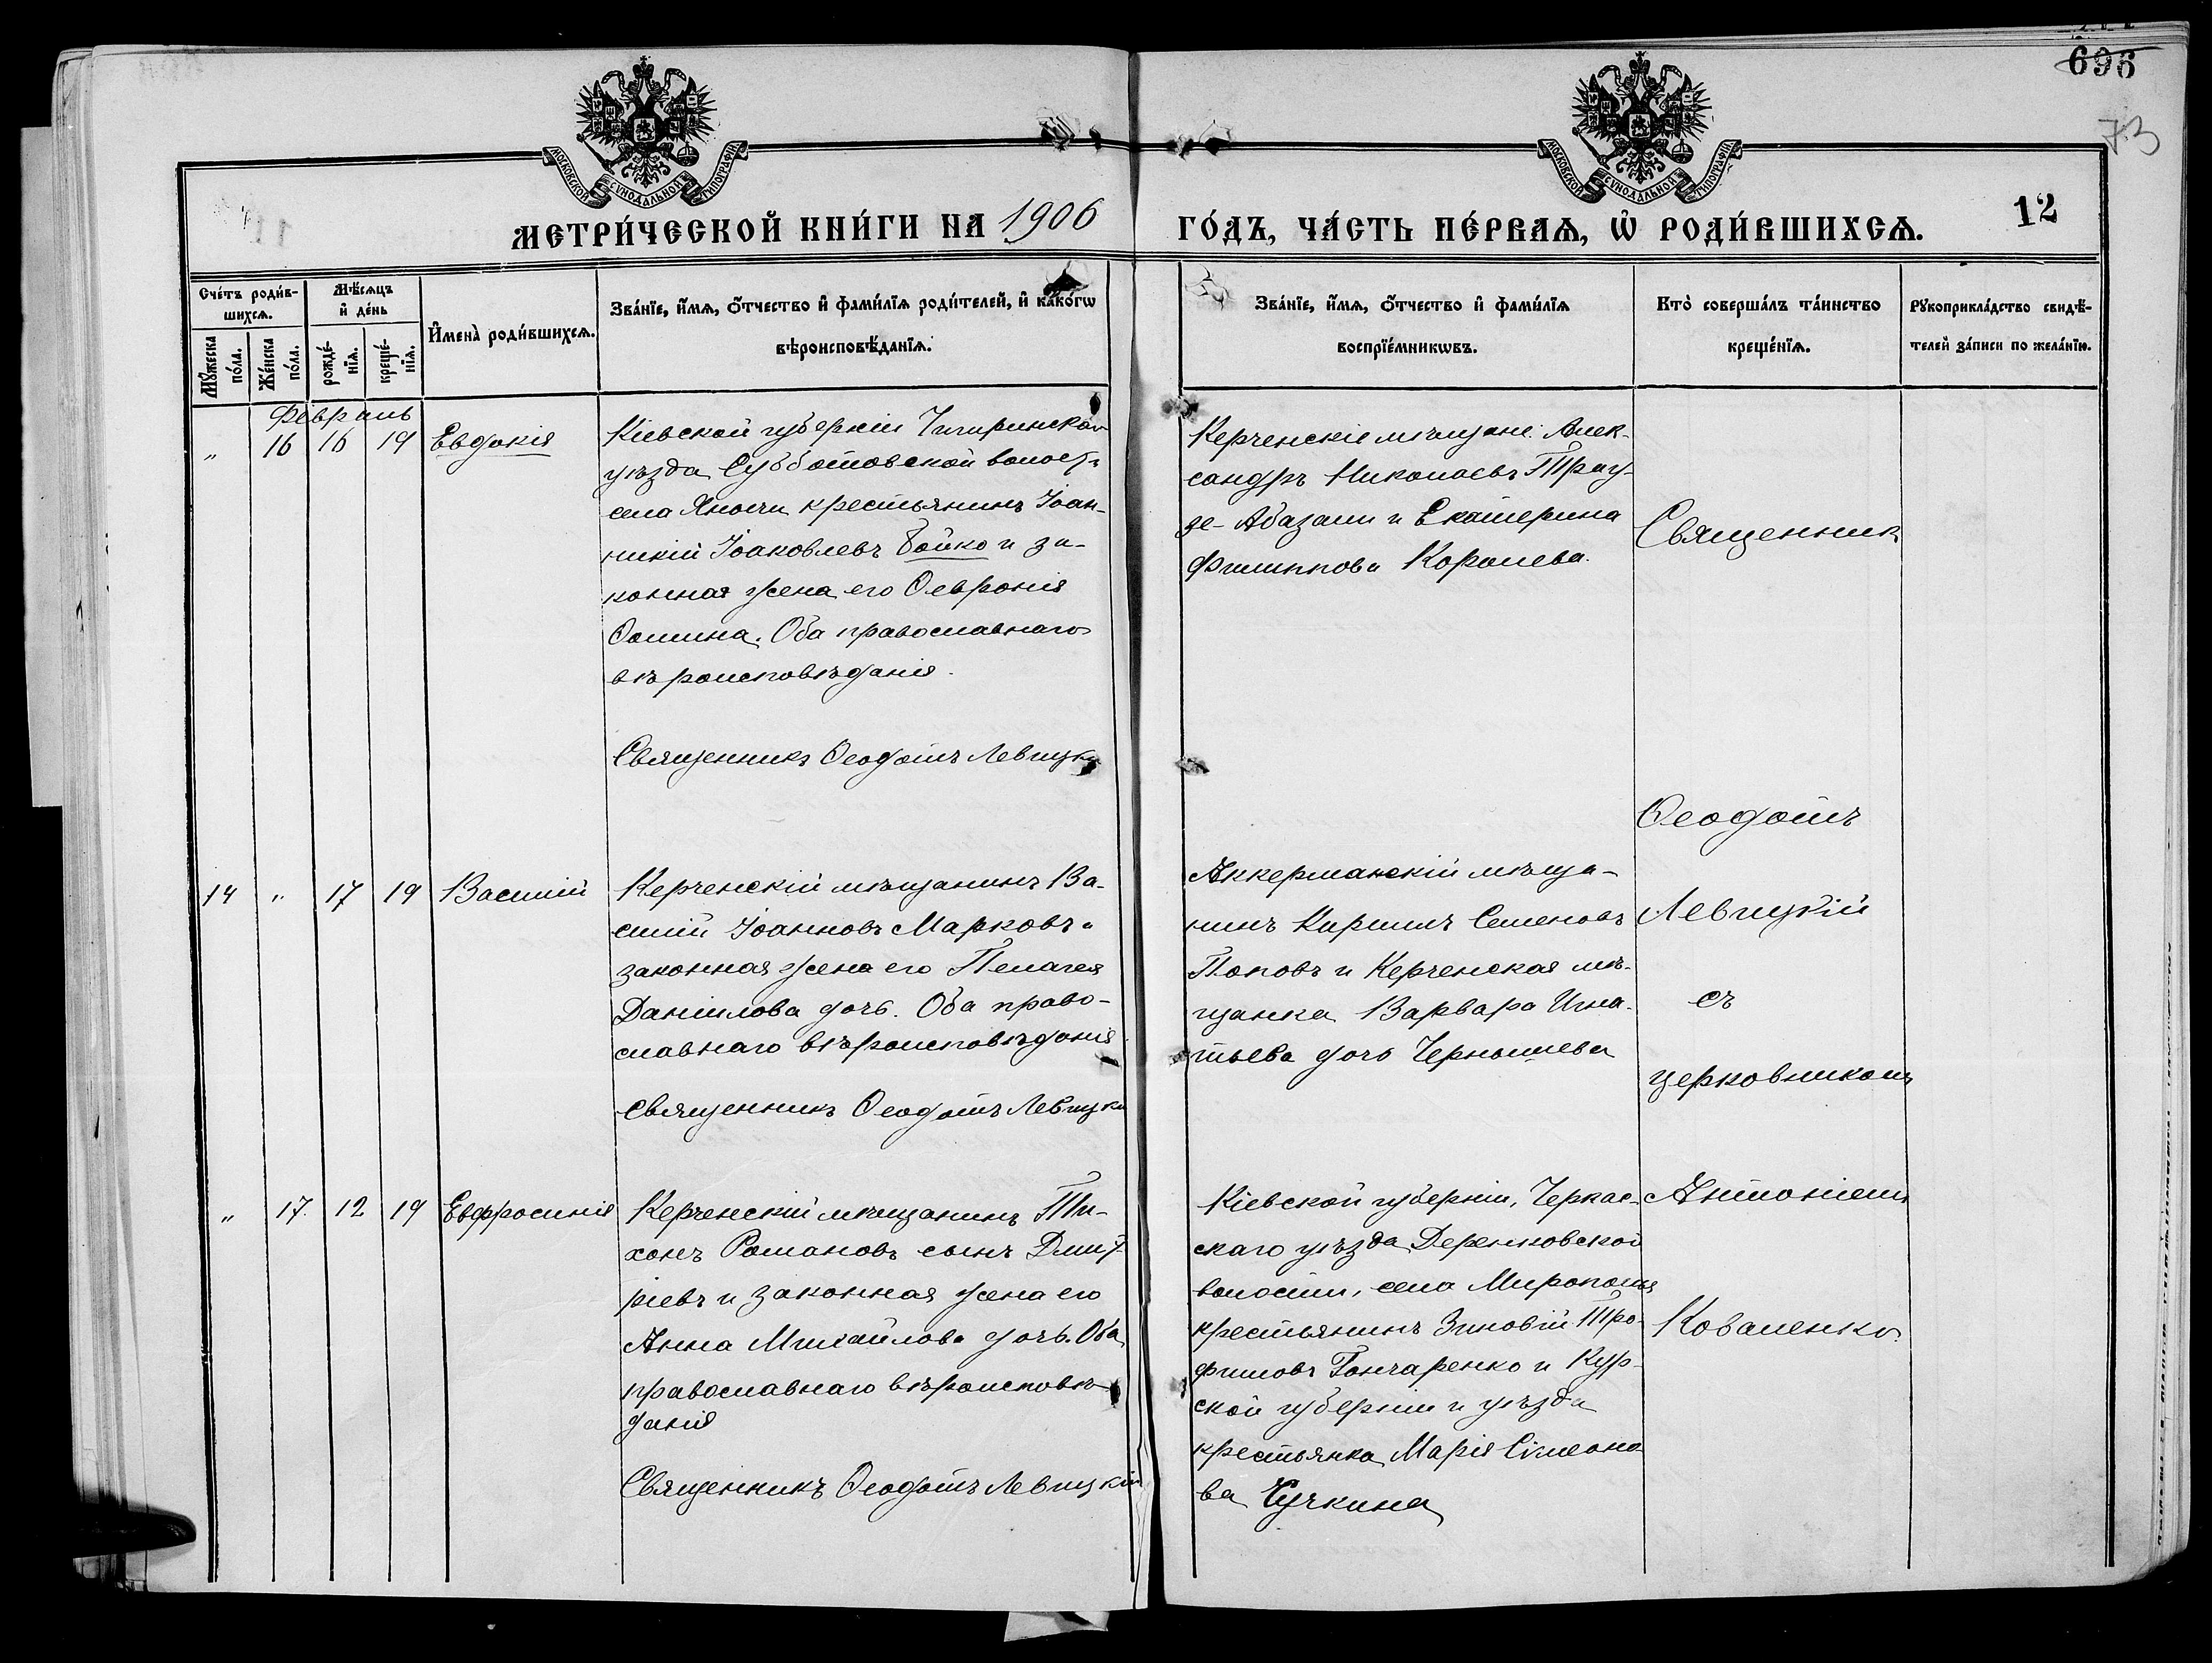 696
73
МОСКОВСКОЙ СѴНОДАЛЬНОЙ ТИПОГРАФІИ
МОСКОВСКОЙ СѴНОДАЛЬНОЙ ТИПОГРАФІИ
МЕТРИ́ЧЕСКОЙ КНИ́ГИ НА 1906 ГО́ДЪ, ЧА́СТЬ ПЕ́РВАѦ, Ѡ҆ РОДИ́ВШИХСѦ.
12
Сче́тъ роди́в-
шихсѧ.
Мѣ́сяцъ
и҆ де́нь
И҆мена̀ роди́вшихсѧ.
Зва́нїе, и҆́мѧ, ѻ҆́тчество и҆ фами́лїѧ роди́телей, и҆ како́гѡ
вѣроисповѣ́данїѧ.
Зва́нїе, и҆́мѧ, ѻ҆́тчество и҆ фами́лїѧ
воспрїе́мникѡвъ.
Кто̀ соверша́лъ та́инство
креще́нїѧ.
Рꙋкоприкла́дство свидѣ́-
телей за́писи по жела́нїю.
Мꙋ́жеска
по́ла.
Же́нска
по́ла.
рожде́-
нїѧ.
креще́-
нїѧ.
Февраль
" 16 16 19 Евдокія
Кіевской губерніи Чигиринской
уѣзда Субботовской волост.
села Яночи крестьянинъ Іоан-
никій Іоаковлевъ Бойко и за-
конная жена его Ѳеврονія
Ѳомина. Оба православнаго
вѣроисповѣданія.
Священникъ Ѳеодотъ Левицкі
Керченскіе мѣщане: Алек-
сандръ Николаевъ Трау-
зе-Абазали и Екатерина
Филиппова Королева.
Священник
Ѳеодотъ
14 " 17 19 Василій
Керченскій мѣщанинъ Ва-
силій Іоанновъ Марковъ и
законная жена его Пелагея
Даніилова дочь. Оба право-
славнаго вѣроисповѣданія
Священникъ Ѳеодотъ Левицкі
Аккерманскій мѣща-
нинъ Кириллъ Семеновъ
Поповъ и Керченская мѣ-
щанка Варвара Игна-
тьева дочь Чернышева
Левицкій
съ
церковникомъ
" 17. 12 19 Евфросинія
Керченскій мѣщанинъ Ти-
хонъ Романовъ сынъ Дмит-
ріевъ и законная жена его
Анна Михайлова дочь. Оба
православнаго вѣроисповѣ-
данія
Священникъ Ѳеодотъ Левицкій
Кіевской губерніи, Черкас-
скаго уѣзда Деренковской
волости, села Мирополья
крестьянинъ Зиновій Тро-
фимовъ Гончаренко и Кур-
ской губерніи и уѣзда
крестьянка Марія Сімеоно-
ва Чучкина
Антоніемъ
Коваленко.